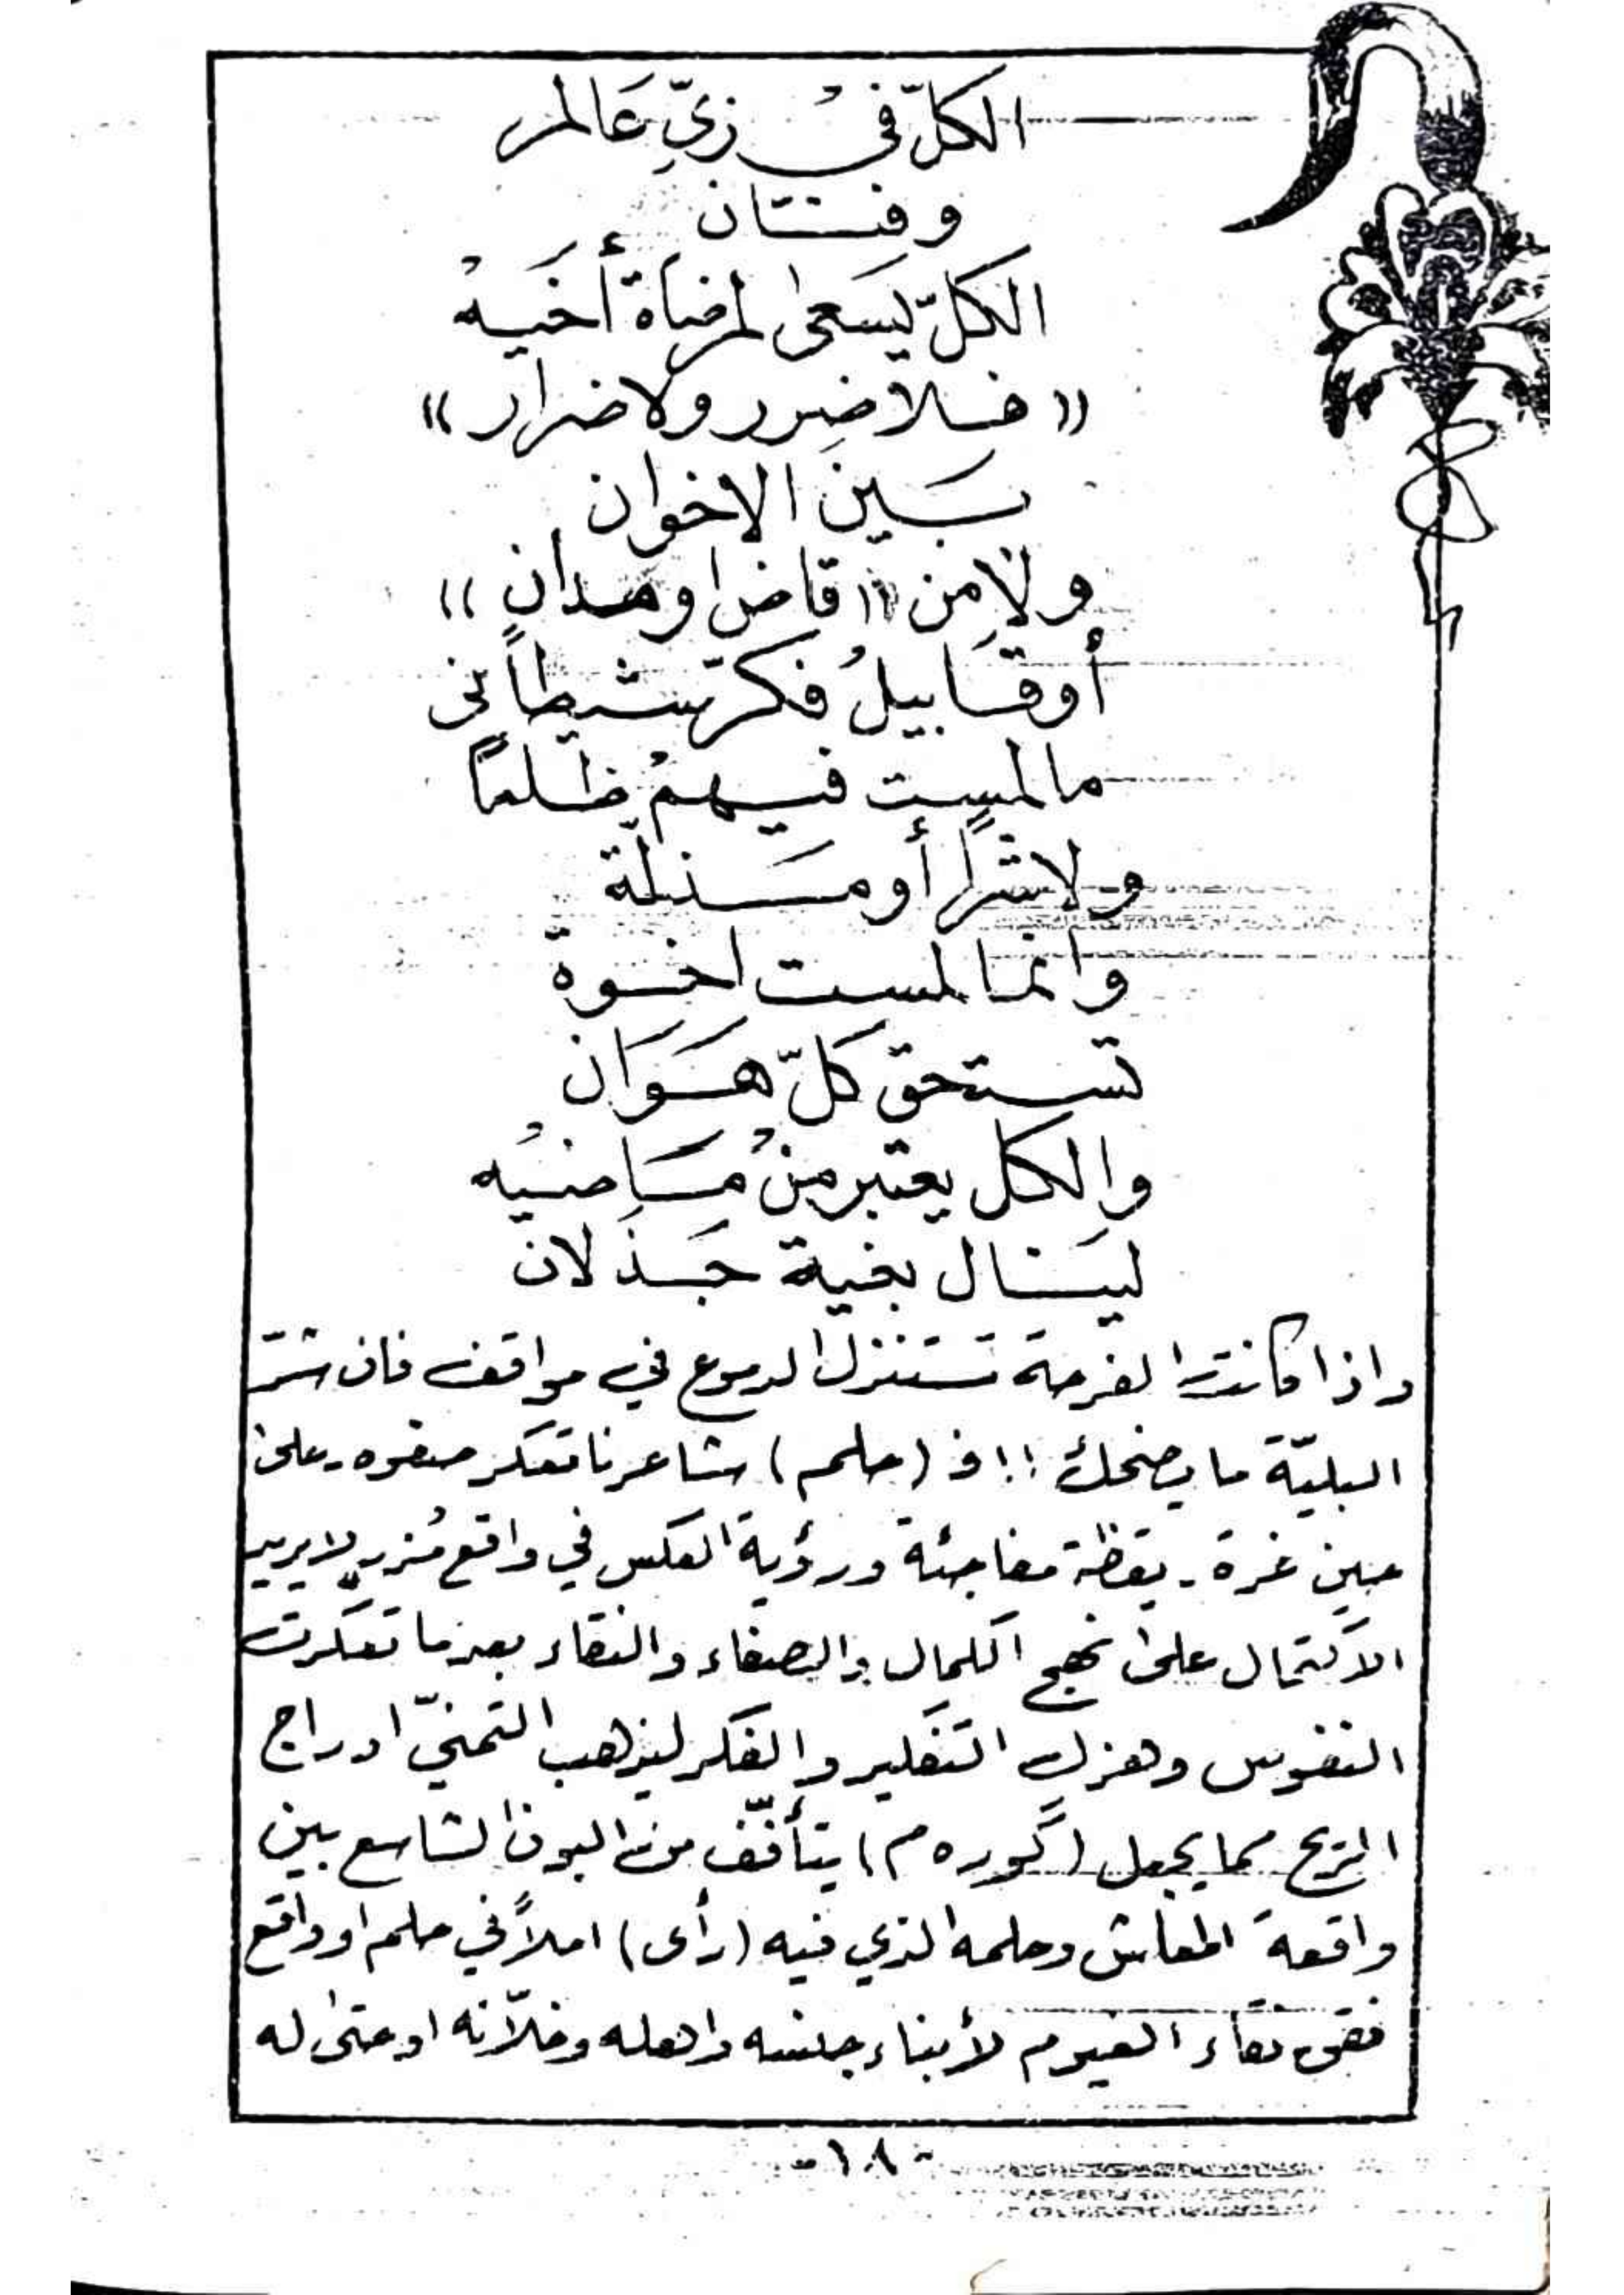 الكلّ في زيّ عالم
وفنتان
الكلّ يسعى لمرضاة أخيه
« فلا ضرر ولا ضرار »
بين الاخوان
ولا من « قاض او مدان »
أو قابيل فكر شيطاني
ما لمست فيهم ظلماً
ولا شراً أو مذلة
وانما لمست اخوة
تستحق كلّ هوان
والكل يعتبر من ماضيه
لينال بغية جذلان
واذا كانت الفرحة تستنزل الدموع في مواقف فان شرّ
البليّة ما يضحك !! فـ (حلم) شاعرنا تعكر صفوه - على
حين غرة - يقظة مفاجئة ورؤية العكس في واقع مُزرٍ لا يريد
الاكتمال على نهج الكمال والصفاء والنقاء بعدما تعكرت
النفوس وهزل التفكير والفكر ليذهب التمنيّ ادراج
الريح مما يجعل (گوره م) يتأفّف من البون الشاسع بين
واقعة المعاش وحلمه الذي فيه (رأى) املاً في حلم او واقع
فقئ نقاء الغيوم لأبناء جلسه واهله وخلاّنه او حتى له
-١٨-